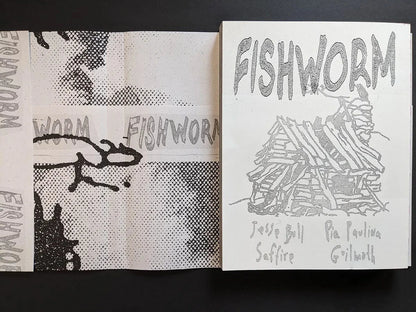 FISHWORM
FISHWORM
WORM
FISHWORM
FISHWORM
Jesse Ball Pia Paulina
Saffire Guilmoth